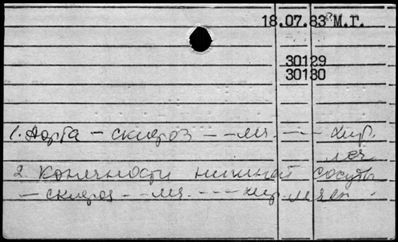 18.07.83 М.Г.
30129
30130
1. Аорта – склероз – –леч. – – – Хир.
леч.
2 Конечности нижней сосуды
– склероз – – леч. – – – хир